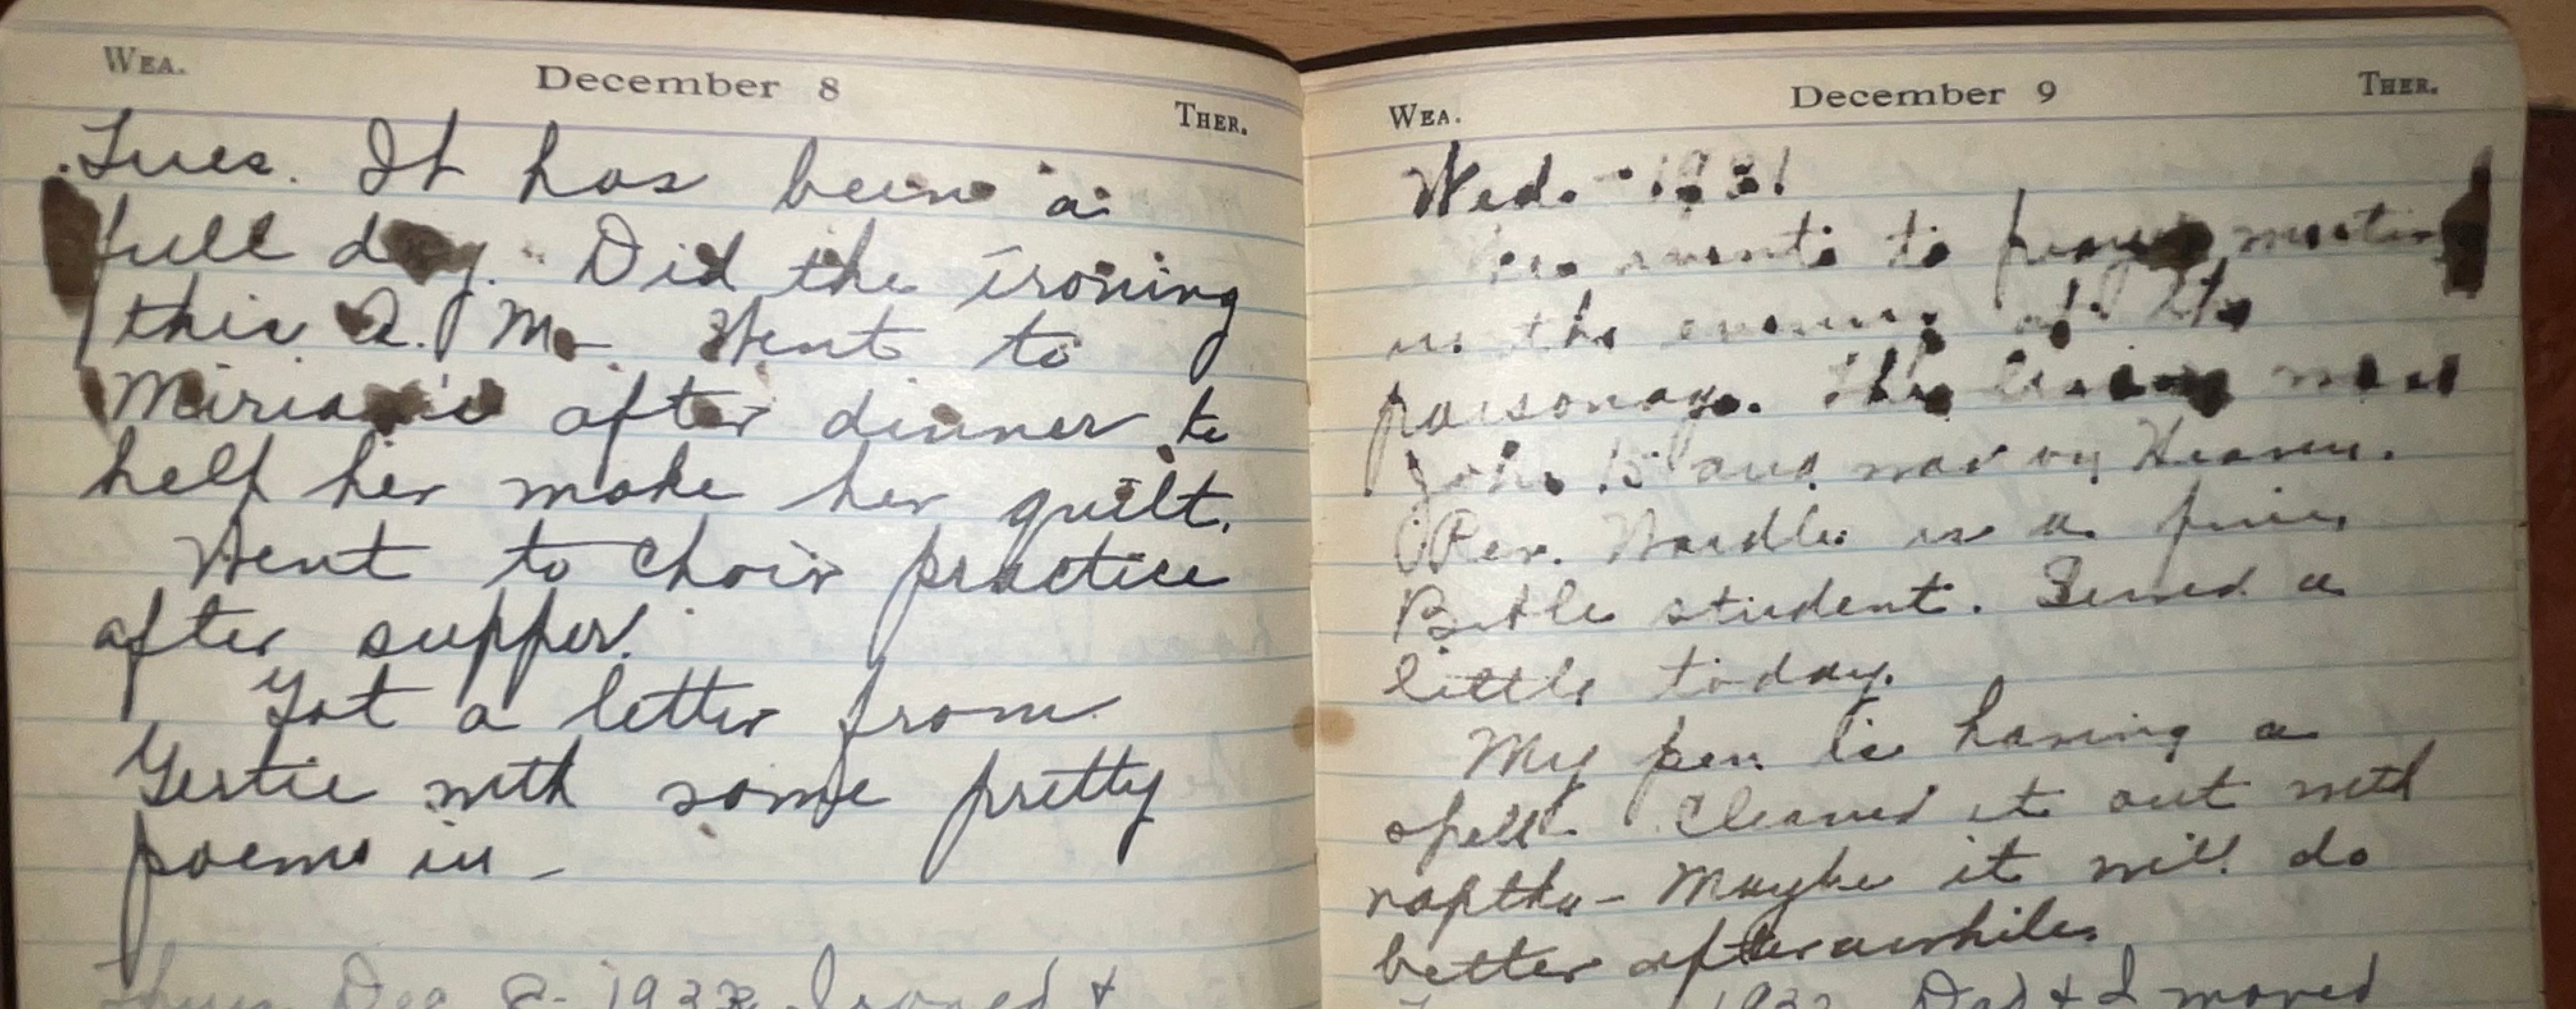 WEA.
December 8
THER.
Tues. It has been a
full day. Did the ironing
this A. M. - Went to
Miriam's after dinner to
help her make her quilt.
Went to choir practice
after supper.
Got a letter from
Gertie with some pretty
poems in -
Thurs. Dec 8 - 1932 Ironed &
WEA.
December 9
THER.
Wed. - 1931
went to prayer meeting
in the evening at the
parsonage. The lesson was
John 15 and was on Heaven.
Rev. is a fine
Bible student. Sewed a
little today.
My pen is having a
spell. Cleaned it out with
naptha - Maybe it will do
better after awhile.
1932 Dad & I moved